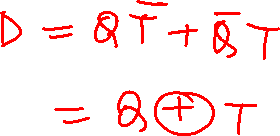 D = QT̅ + Q̅T
= Q ⊕ T